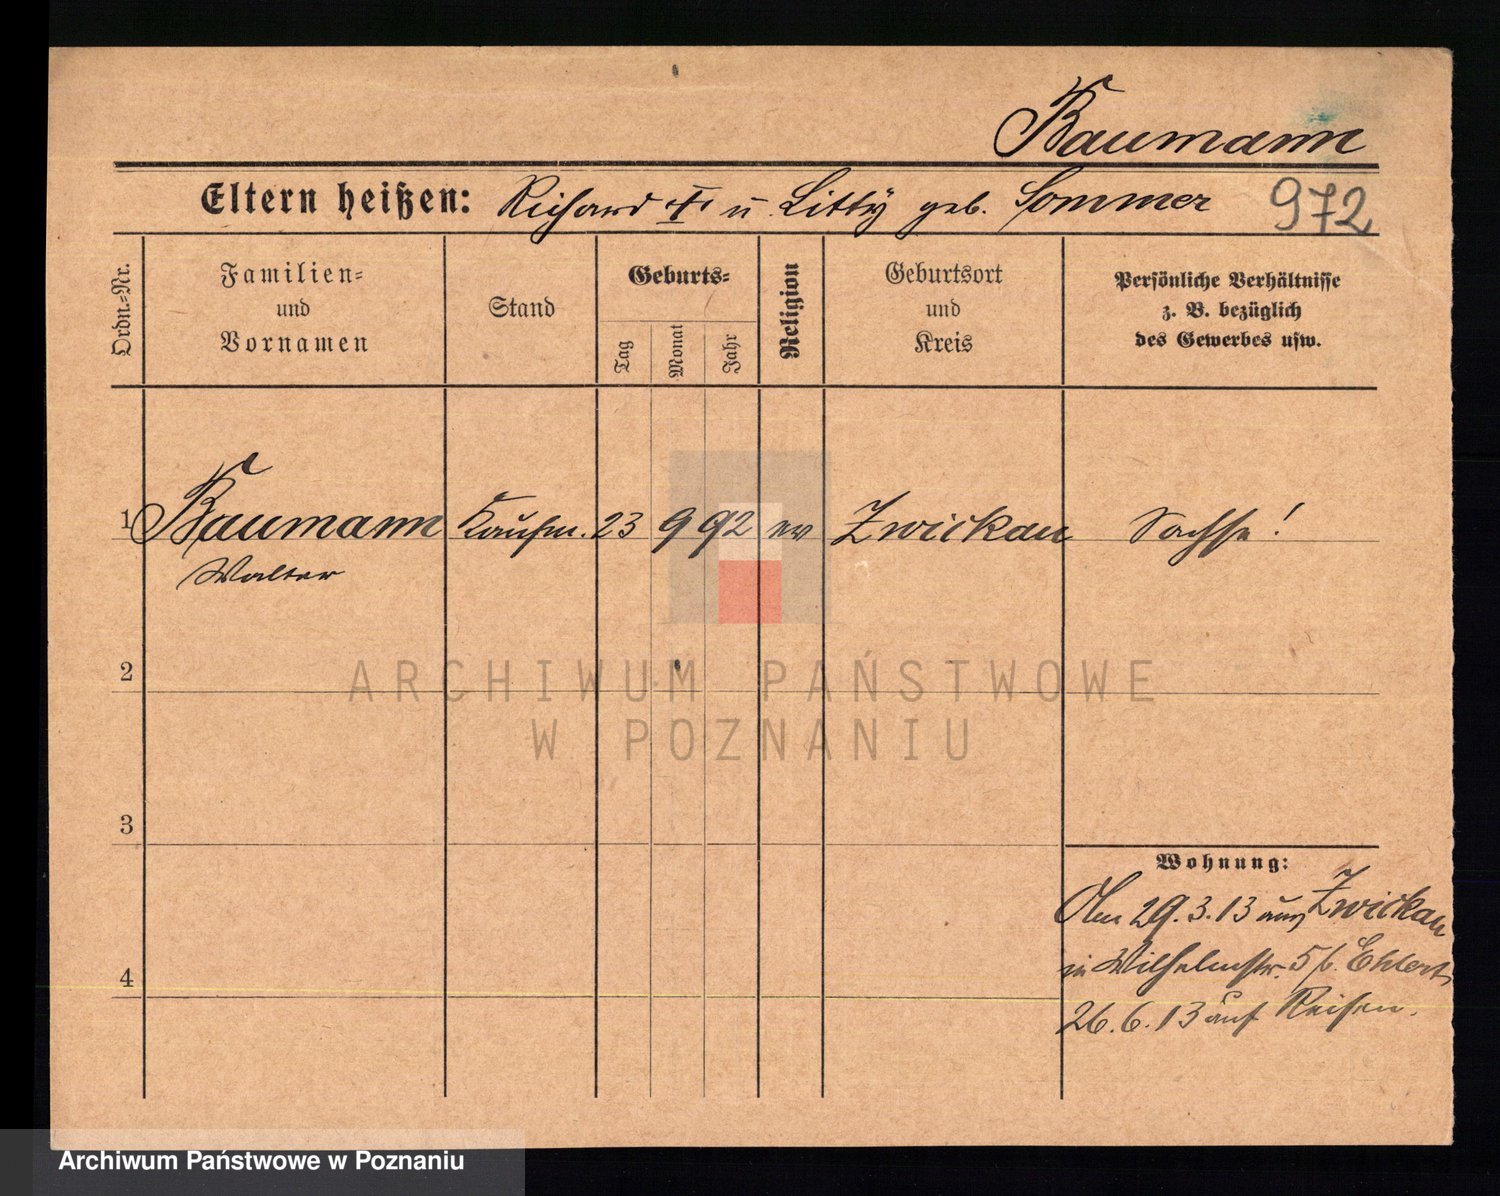 Baumann
Eltern heißen: Richard † u. Litty geb. Sommer 972
Ordn.=Nr.
Familien=
und
Vornamen
Stand
Geburts=
Tag
Monat
Jahr
Religion
Geburtsort
und
Kreis
Persönliche Verhältnisse
z. B. bezüglich
des Gewerbes usw.
1 Baumann Kaufm. 23 9 92 ev Zwickau Sachse!
Walter
2
ARCHIWUM PAŃSTWOWE
W POZNANIU
3
Wohnung:
29.3.13 aus Zwickau
in Wilhelmstr. 5 b. Ehlert
4
26.6.13 auf Reisen.
Archiwum Państwowe w Poznaniu